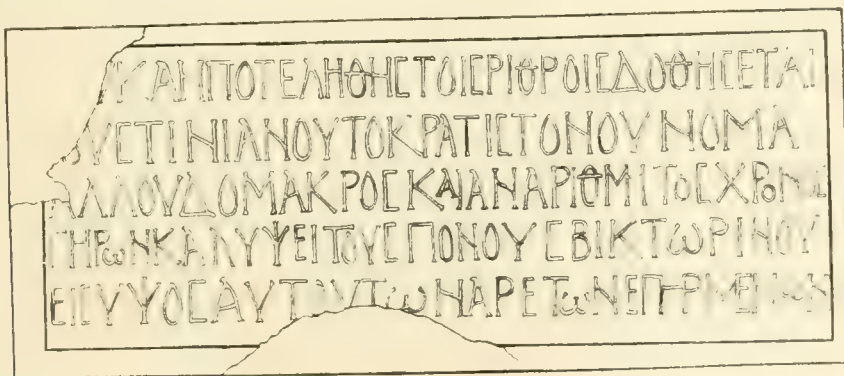 ΥΔΗΠΟΤΕΛΗΘΗCΤΟΙCΡΙΘΡΟΙCΔΟΘΗCΕΤΑΙ
ΟΥCΤΙΝΙΑΝΟΥΤΟΚΡΑΤΙCΤΟΝΟΥΝΟΜΑ
ΑΛΛΟΥΔΟΜΑΚΡΟCΚΑΙΑΝΑΡΙΘΜΙΤΟCΧΡΟΝΟC
ΓΗΡΩΝΚΑΛΥΨΕΙΤΟΥCΠΟΝΟΥCΒΙΚΤΩΡΙΝΟΥ
ΕΙCΥΨΟCΑΥΤΟΝΤΩΝΑΡΕΤΩΝΕΠΗΡΜΕΝΩΝ